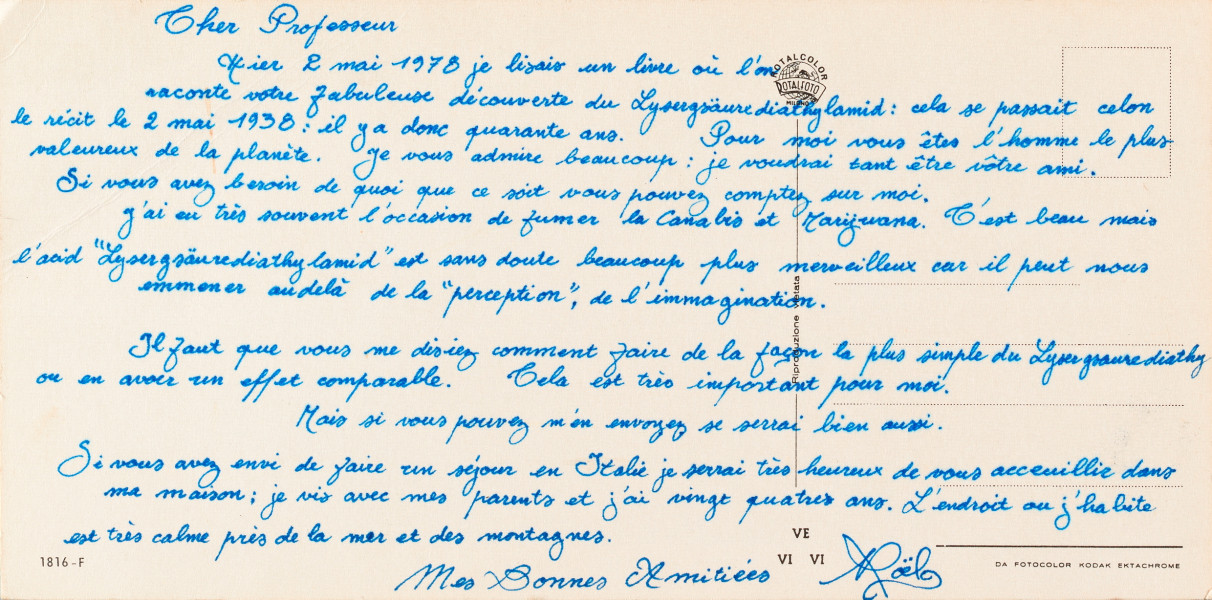 Cher Professeur
Hier 2 mai 1978 je lisais un livre où l'on
raconte votre fabuleuse découverte du Lysergsäurediathylamid: cela se passait celon
le récit le 2 mai 1938: il y a donc quarante ans. Pour moi vous êtes l'homme le plus
valeureux de la planète. Je vous admire beaucoup: je voudrai tant être vôtre ami.
Si vous avez besoin de quoi que ce soit vous pouvez comptez sur moi.
J'ai eu très souvent l'occasion de fumer la Canabis et Marijuana. C'est beau mais
l'acid "Lysergsäurediathylamid" est sans doute beaucoup plus merveilleux car il peut nous
emmener audelà de la "perception", de l'immagination.
Il faut que vous me disiez comment faire de la façon la plus simple du Lysergsaurediathy
ou en avoir un effet comparable. Cela est très important pour moi.
Mais si vous pouvez m'én envoyez se serrai bien aussi.
Si vous avez envi de faire un séjour en Italié je serrai très heureux de vous acceuillir dans
ma maison; je vis avec mes parents et j'ai vingt quatres ans. L'endroit ou j'habite
est très calme près de la mer et des montagnes.
Mes Bonnes Amitiées Noël
ROTALCOLOR
ROTALFOTO
MILANO
Riproduzione vietata
1816-F
VE
VI VI
DA FOTOCOLOR KODAK EKTACHROME